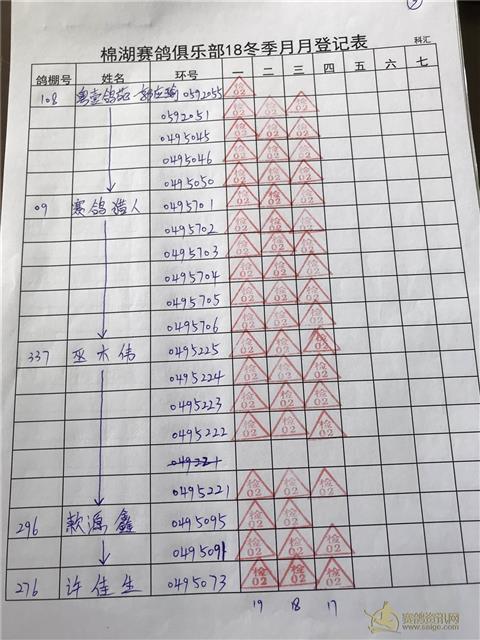 棉湖赛鸽俱乐部18冬季月月登记表
科汇
鸽棚号 姓名 环号 一 二 三 四 五 六 七
108 0592055 检02
0592051 检02 检02 检02
0495045 检02 检02 检02
0495046 检02 检02 检02
0495050 检02 检02 检02
09 赛鸽猎人 0495701 检02 检02 检02
0495702 检02 检02 检02
0495703 检02 检02 检02
0495704 检02 检02 检02
0495705 检02 检02 检02
0495706 检02 检02 检02
337 巫木伟 0495225 检02 检02 检02
0495224 检02 检02 检02
0495223 检02 检02 检02
0495222 检02 检02 检02
0495221 检02 检02 检02
296 源鑫 0495095 检02 检02
0495091 检02 检02 检02
276 许佳生 0495073 检02 检02 检02
19 18 17
赛鸽资讯网
www.saige.com